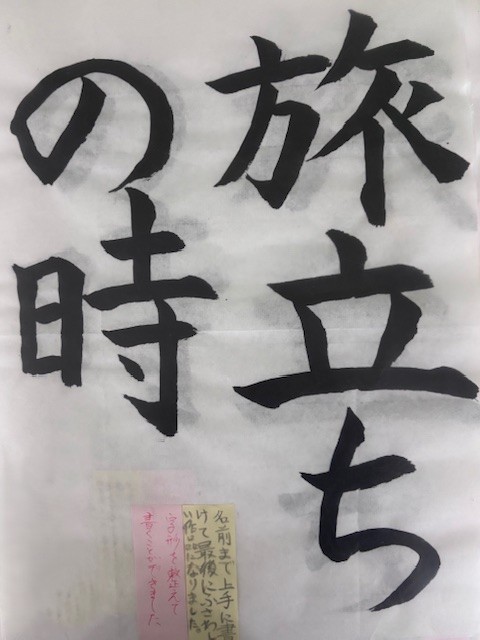 旅立ち
の時
名前まで上手に書
けて最後にふさわし
い作品になりました。
字形を整えて
書くことができました